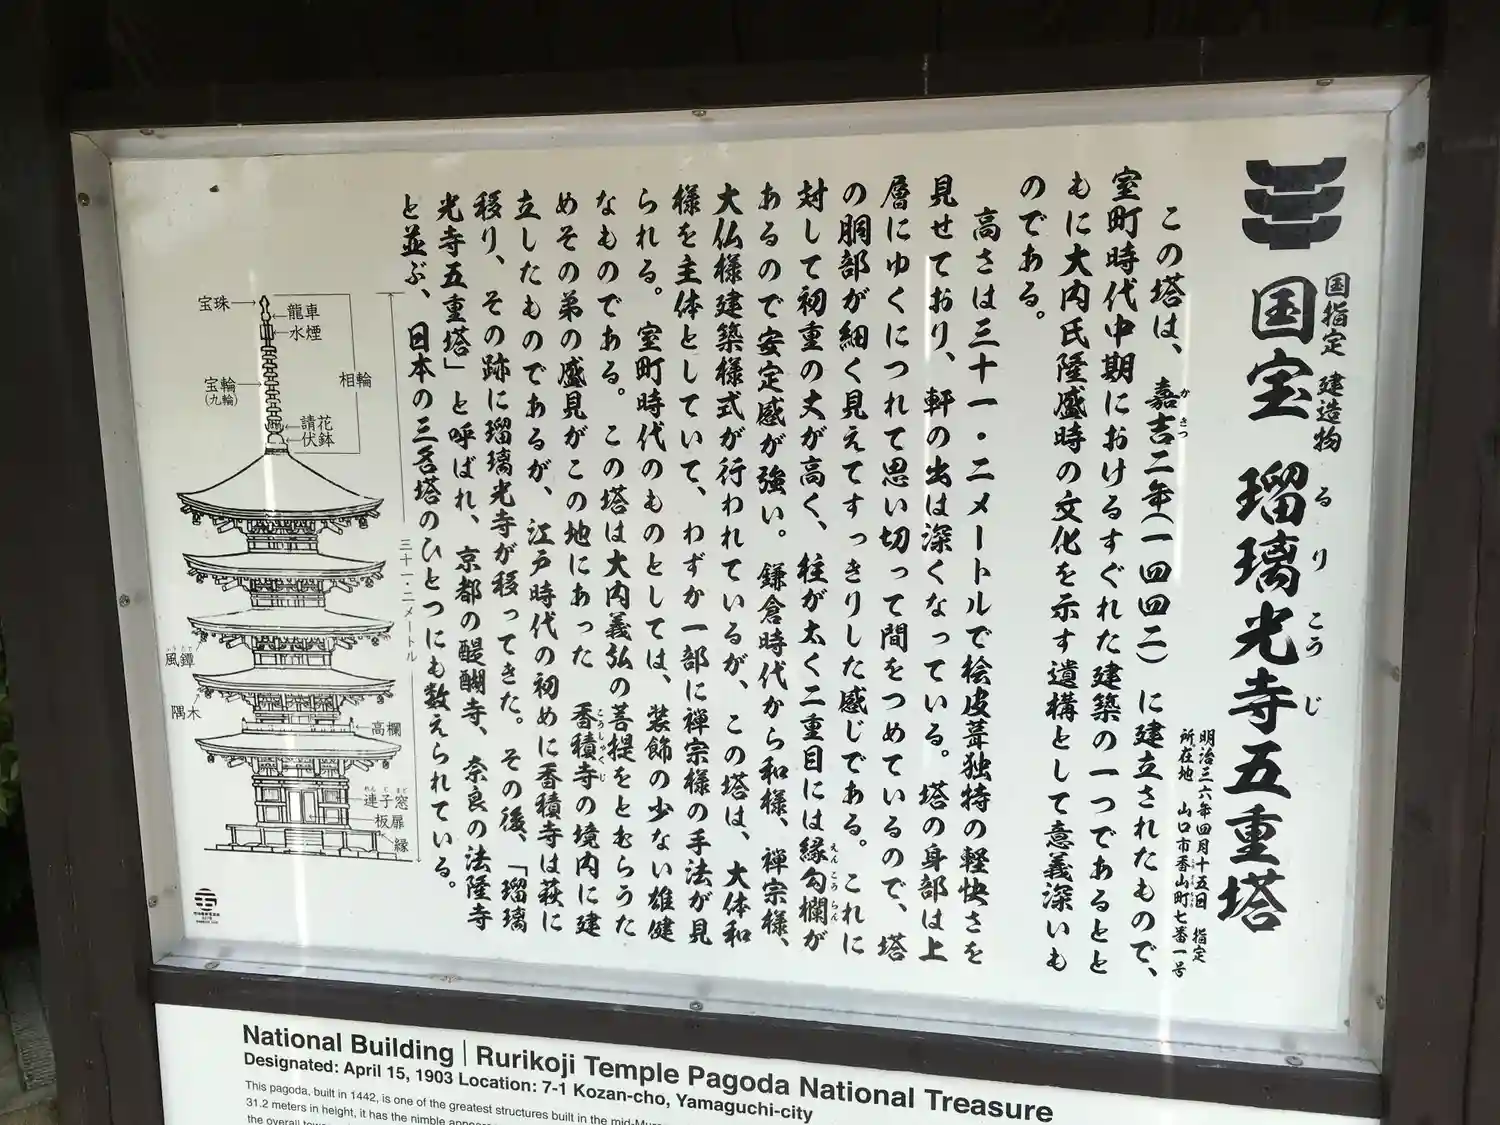 国指定 建造物
国宝 瑠璃光寺五重塔
る り こう じ
明治三六年四月十五日 指定
所在地 山口市香山町七番一号
この塔は、嘉吉二年(一四四二)に建立されたもので、
かきつ
室町時代中期におけるすぐれた建築の一つであるとと
もに大内氏隆盛時の文化を示す遺構として意義深いも
のである。
高さは三十一・二メートルで桧皮葺独特の軽快さを
見せており、軒の出は深くなっている。塔の身部は上
層にゆくにつれて思い切って間をつめているので、塔
の胴部が細く見えてすっきりした感じである。これに
対して初重の丈が高く、柱が太く二重目には縁勾欄が
えんこうらん
あるので安定感が強い。鎌倉時代から和様、禅宗様、
大仏様建築様式が行われているが、この塔は、大体和
様を主体としていて、わずか一部に禅宗様の手法が見
られる。室町時代のものとしては、装飾の少ない雄健
なものである。この塔は大内義弘の菩提をとむらうた
めその弟の盛見がこの地にあった 香積寺の境内に建
こうしゃくじ
立したものであるが、江戸時代の初めに香積寺は萩に
移り、その跡に瑠璃光寺が移ってきた。その後、「瑠璃
光寺五重塔」と呼ばれ、京都の醍醐寺、奈良の法隆寺
と並ぶ、日本の三名塔のひとつにも数えられている。
宝珠
龍車
水煙
相輪
宝輪
(九輪)
請花
伏鉢
三十一・二メートル
風鐔
隅木
高欄
れんじまど
連子窓
板扉
縁
National Building | Rurikoji Temple Pagoda National Treasure
Designated: April 15, 1903 Location: 7-1 Kozan-cho, Yamaguchi-city
This pagoda, built in 1442, is one of the greatest structures built in the
31.2 meters in height, it has the nimble
the overall